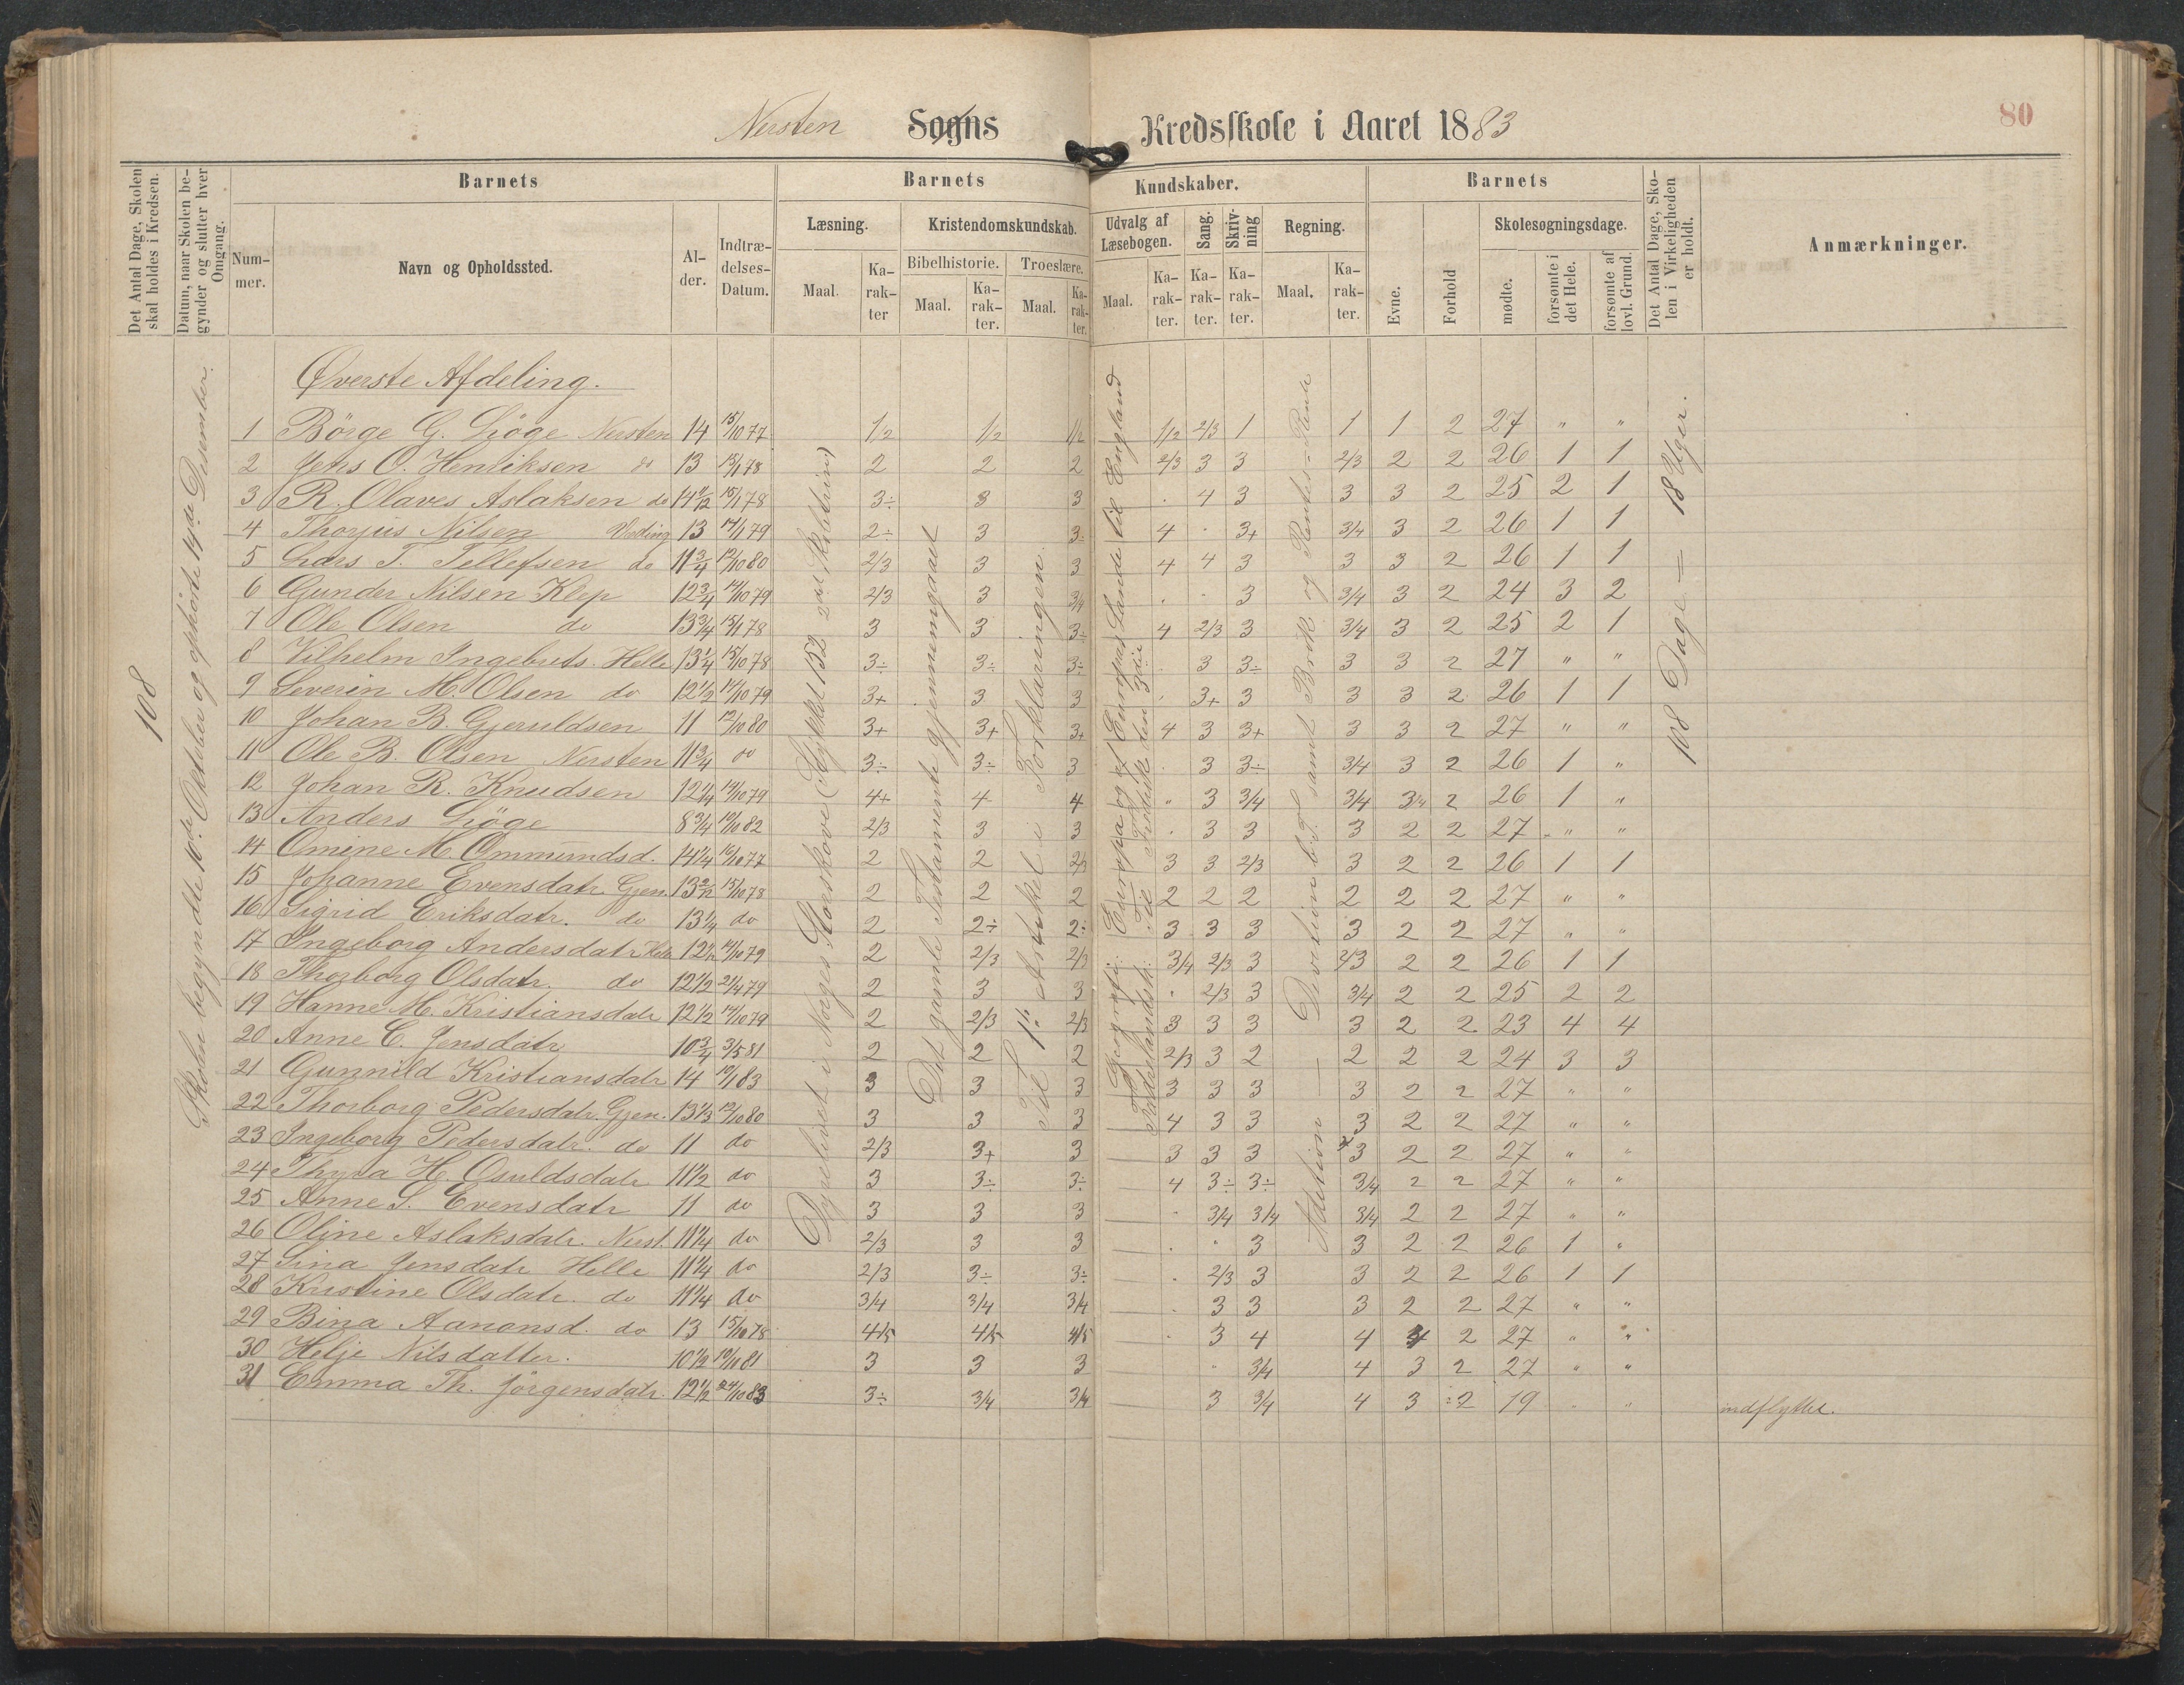 Nersten Sogns Kredsskole i Aaret 1883
80
Det Antal Dage, Skolen skal holdes i Kredsen.
Datum, naar Skolen begynder og slutter hver Omgang.
Barnets
Nummer.
Navn og Opholdssted.
Alder.
Indtrædelses-Datum.
Barnets Kundskaber.
Læsning.
Maal.
Karakter
Kristendomskundskab.
Bibelhistorie.
Maal.
Karakter.
Troeslære.
Maal.
Karakter.
Udvalg af Læsebogen.
Maal.
Karakter.
Sang.
Karakter.
Skrivning
Karakter.
Regning.
Maal.
Karakter.
Barnets
Evne.
Forhold
Skolesøgningsdage.
mødte.
forsømte i det Hele.
forsømte af lovl. Grund.
Det Antal Dage, Skolen i Virkeligheden er holdt.
Anmærkninger.
108
Skolen begyndte 10de Oktober og ophørte 14de December.
Dyrelivet i Norges Storskove (Stykket 152 2det Skoletrin)
Det gamle Testamente gjennemgaaet
Til 1ste Artikel i Forklaringen.
Geografi: Europa og af Europas Lande til England
Fædrelandsh.: Til Frederik den 3die
Addition — Division b. T. samt Brøk og Rentes-Rente
108 Dage = 18 Uger.
Øverste Afdeling.
1 Børge G. Gjøge Nersten 14 15/10 77 1/2 1/2 1/2 1/2 2/3 1 1 1 2 27 " "
2 Jens O. Henriksen do 13 15/1 78 2 2 2 2/3 3 3 2/3 2 2 26 1 1
3 R. Olaves Aslaksen do 14 2/12 15/1 78 3÷ 3 3 . 4 3 3 3 2 25 2 1
4 Thorjus Nilsen 13 14/1 79 2÷ 3 3÷ 4 . 3+ 3/4 3 2 26 1 1
5 Lars T. Tellefsen do 11 3/4 12/10 80 2/3 3 3 4 4 3 3 3 2 26 1 1
6 Gunder Nilsen Klep 12 3/4 14/10 79 2/3 3 3/4 . . 3 3/4 3 2 24 3 2
7 Ole Olsen do 13 3/4 15/1 78 3 3 3÷ 4 2/3 3 3/4 3 2 25 2 1
8 Vilhelm Ingebrets. Helle 13 1/4 15/10 78 3÷ 3÷ 3÷ . 3 3÷ 3 3 2 27 " "
9 Severin M. Olsen do 12 1/2 14/10 79 3+ 3 3 . 3+ 3 3 3 2 26 1 1
10 Johan B. Gjeruldsen 11 12/10 80 3+ 3+ 3+ 4 3 3+ 3 3 2 27 " "
11 Ole B. Olsen Nersten 11 3/4 do 3÷ 3÷ 3 . 3 3÷ 3/4 3 2 26 1 "
12 Johan R. Knudsen 12 1/4 14/10 79 4+ 4 4 " 3 3/4 3/4 3/4 2 26 1 "
13 Anders Gjøge 8 3/4 10/10 82 2/3 3 3 . 3 3 3 2 2 27 " "
14 Omine M. Ommundsd. 14 1/4 15/10 77 2 2 2/3 3 3 2/3 3 2 2 26 1 1
15 Johanne Evensdatr. Gjen. 13 2/12 15/10 78 2 2 2 2 2 2 2 2 2 27 " "
16 Sigrid Eriksdatr. do 13 1/4 do 2 2÷ 2÷ 3 3 3 3 2 2 27 " "
17 Ingeborg Andersdatr. Helle 12 1/2 14/10 79 2 2/3 2/3 3/4 2/3 3 2/3 2 2 26 1 1
18 Thorborg Olsdatr. do 12 1/2 21/4 79 2 3 3 " 2/3 3 3/4 2 2 25 2 2
19 Hanne M. Kristiansdatr 12 1/2 14/10 79 2 2/3 2/3 3 3 3 3 2 2 23 4 4
20 Anne C. Jensdatr 10 3/4 3/5 81 2 2 2 2/3 3 2 2 2 2 24 3 3
21 Gunnild Kristiansdatr 14 10/1 83 3 3 3 3 3 3 3 2 2 27 " "
22 Thorborg Pedersdatr. Gjen. 13 1/3 12/10 80 3 3 3 4 3 3 3 2 2 27 " "
23 Ingeborg Pedersdatr. do 11 do 2/3 3+ 3 3 3 3 3 2 2 27 " "
24 Thyra H. Osuldsdatr 11 1/2 do 3 3÷ 3÷ 4 3÷ 3÷ 3/4 2 2 27 " "
25 Anne S. Evensdatr 11 do 3 3 3 " 3/4 3/4 3/4 2 2 27 " "
26 Oline Aslaksdatr. Nerst. 11 1/4 do 2/3 3 3 . " 3 3 2 2 26 1 "
27 Sina Jensdatr Helle 11 1/4 do 2/3 3÷ 3÷ . 2/3 3 3 2 2 26 1 1
28 Kristine Olsdatr. do 11 1/4 do 3/4 3/4 3/4 . 3 3 3 2 2 27 " "
29 Bina Aanonsd. do 13 15/10 78 4/5 4/5 4/5 . 3 4 4 4 2 27 " "
30 Helje Nilsdatter. 10 1/2 19/10 81 3 3 3 " 3/4 4 3 2 27 " "
31 Emma Th. Jørgensdatr. 12 1/2 24/10 83 3÷ 3/4 3/4 3 3/4 4 3 ÷2 19 " " indflyttet.